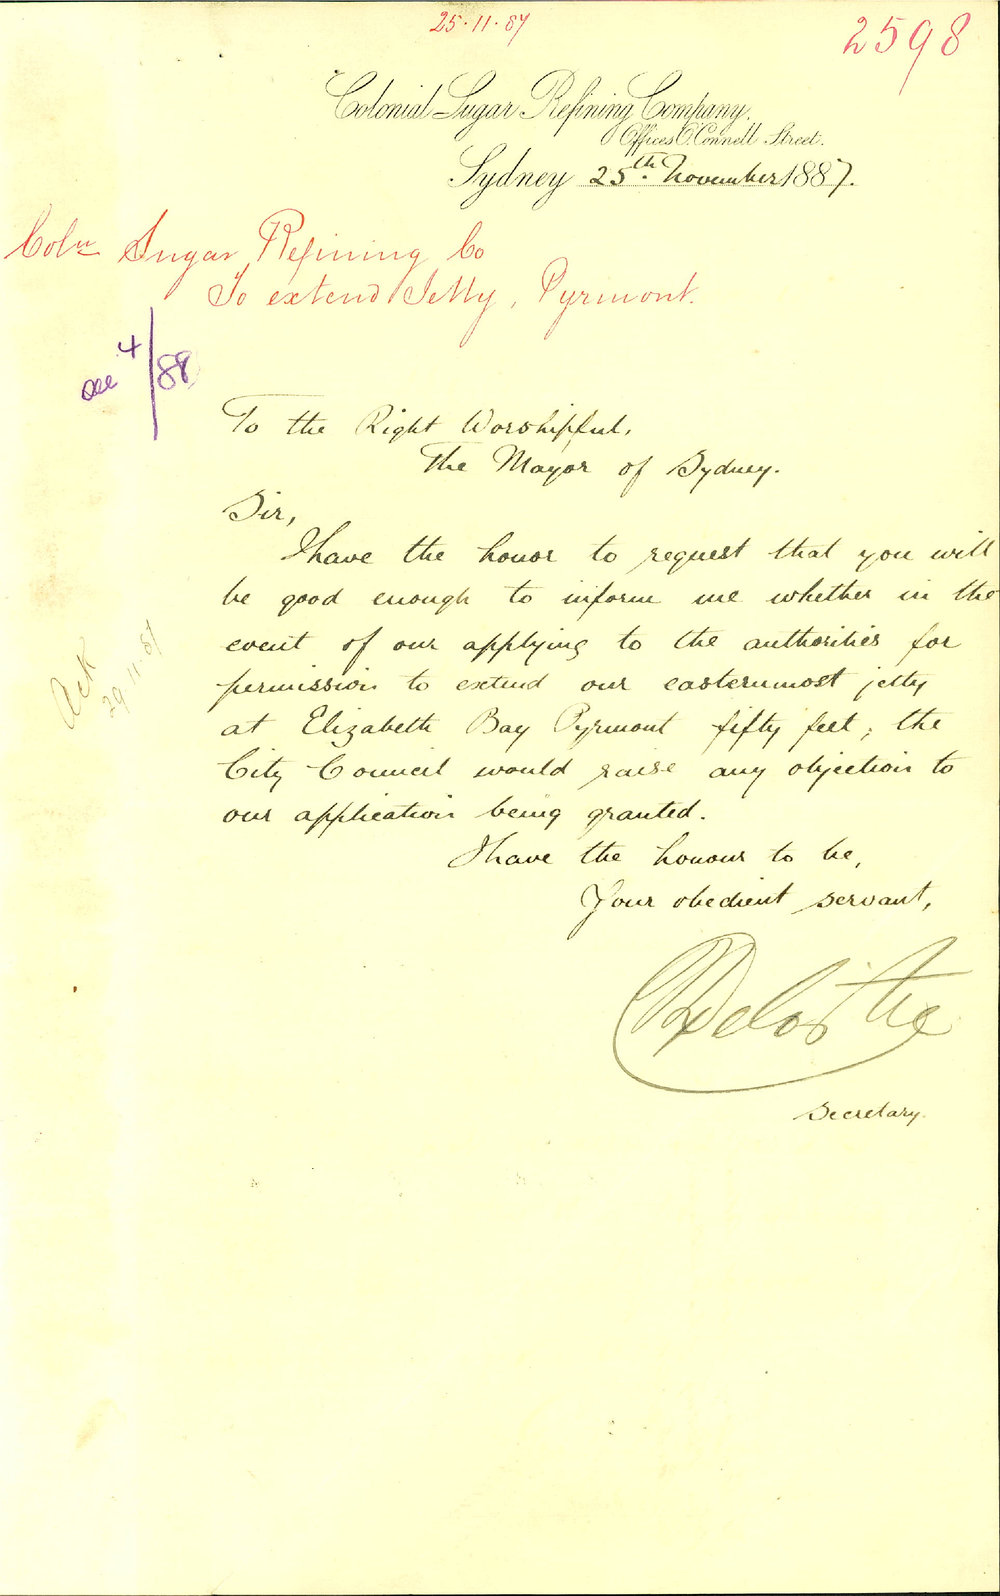 25.11.87
2598
Colonial Sugar Refining Company.
Offices O'Connell Street.
Sydney 25th November 1887.
Coln Sugar Refining Co
To extend Jetty, Pyrmont.
see 4/88
To the Right Worshipful,
The Mayor of Sydney.
Sir,
I have the honor to request that you will
be good enough to inform me whether in the
event of our applying to the authorities for
permission to extend our easternmost jetty
at Elizabeth Bay Pyrmont fifty feet, the
City Council would raise any objection to
our application being granted.
Ack
29.11.87
I have the honour to be,
Your obedient servant,
Deloitte
Secretary.